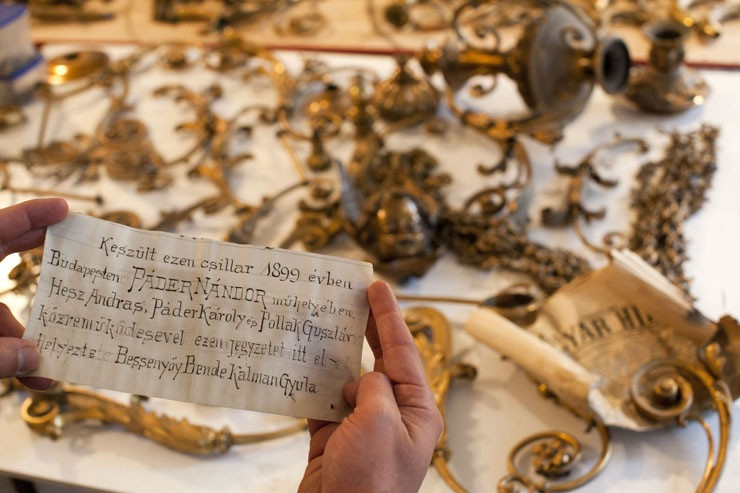 Keszült ezen csillar 1899 évben
Budapesten PÁDER NÁNDOR műhelyében.
Hesz Andras, Páder Károly és Pollak Gusztáv
közremüködesével ezen jegyzetet itt el-
helyezte Bessenyőy Bende Kalman Gyula
YAR HI